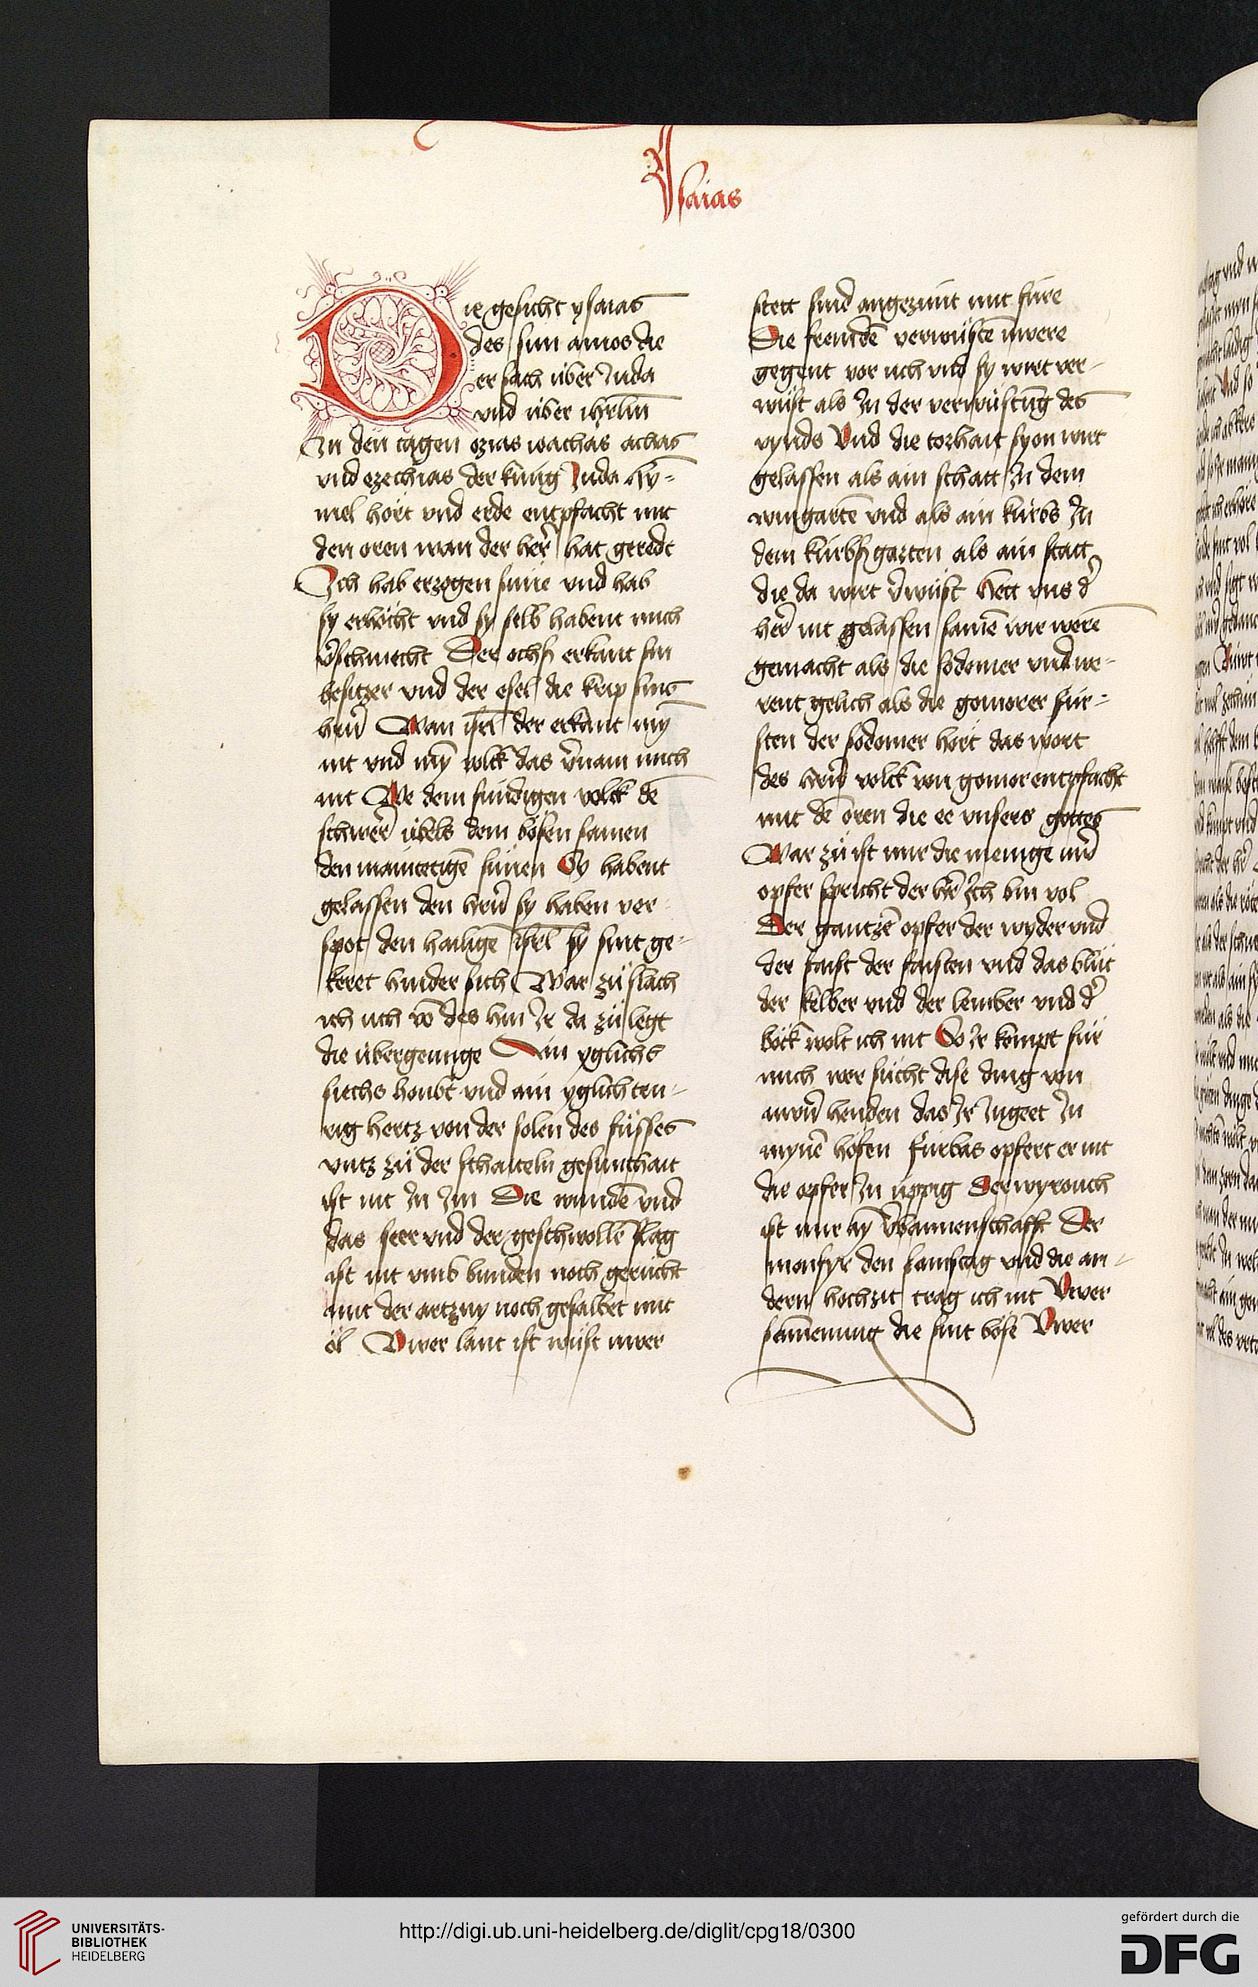 Ysaias
Die gesicht ysaias
des sun amos die
er sach über Juda
vnd über ihrlm̄
In den tagen ozias ioathas achas
vnd ezechias der kūng Juda Hy-
mel hört vnd erde entpfacht mit
den oren wan der her̄ hat geredt
Ich hab erzogen süne vnd hab
sy erhöcht vnd sy selb habent mich
v̄schmecht Der ochß erkant sin
besitzer vnd der esel die krip sins
hern̄ Wan isrl̄ der erkant my̅
nit vnd my̅ volck das v̄nam mich
nit We dem sündigen volck de̅
schwer̄ übels dem bösen samen
den maintetige̅ sünen Sy habent
gelassen den hern̄ sy haben ver
spot den hailige̅ isrl̄ sy sint ge-
keret hinder sich War zü slach
ich üch vo̅ des hin Jr da zü legt
die übergennge Ain yglichs
siechs houbt vnd ain yglich ten-
rig hertz von der solen des füsses
vntz zü der schaiteln gesunthait
ist nit Jn Jm Die wunde̅ vnd
das seer vnd der geschwolle̅ slag
ist nit vmb bunden noch gerücht
mit der artzny noch gesalbet mit
öl Vwer lant ist wüst vwer
stett sind angezünt mit füre
Die fremde̅ verwüste̅ üwere
gegent vor üch vnd sy wirt ver-
wüst als Jn der verwüstu̅g des
vynds Vnd die torhait syon wirt
gelassen als ain schatt Jn dem
wingarte̅ vnd als ain kürbs Jn
dem kürbßgarten als ain statt
die da wirt v̄wüst Hett vns d̄
her̄ nit gelassen same̅ wir were̅
gemacht als die sodomer vnd we-
rent gelich als die gomorer für-
sten der sodomer hört das wort
des hern̄ volck von gomor entpfacht
mit de̅ oren die ee vnsers gottes
War zü ist mir die menige üw̄
opfer spricht der her̄ Ich bin vol
Der gantze̅ opfer der wyder vnd
der faist der faisten vnd das blüt
der kelber vnd der lember vnd d̄
böck wolt ich nit So Jr kompt für
mich wer sücht dise ding von
üwn̄ henden das Jr Jngeet Jn
myne̅ höfen fürbas opfert er nit
die opfer Jn üppig Der wyrouch
ist mir ay̅ v̄bannenschafft Der
monfyr den samstag vnd die an-
dern hochzit trag ich nit Vwer
samenung die sint böse Vwer
UNIVERSITÄTS-
BIBLIOTHEK
HEIDELBERG
http://digi.ub.uni-heidelberg.de/diglit/cpg18/0300
gefördert durch die
DFG